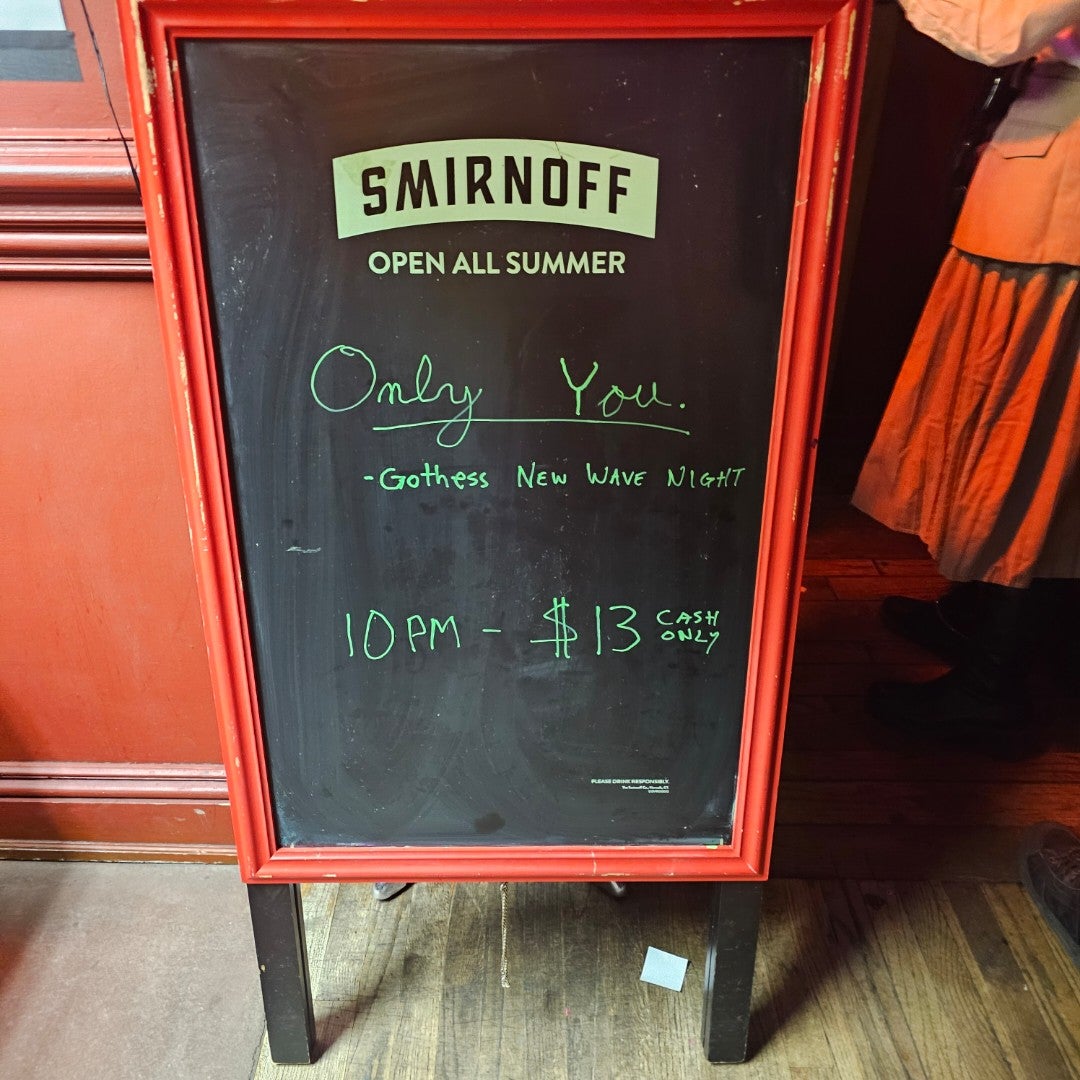 SMIRNOFF
OPEN ALL SUMMER
Only You.
-Gothess New Wave Night
10PM - $13 CASH
ONLY
PLEASE DRINK RESPONSIBLY.